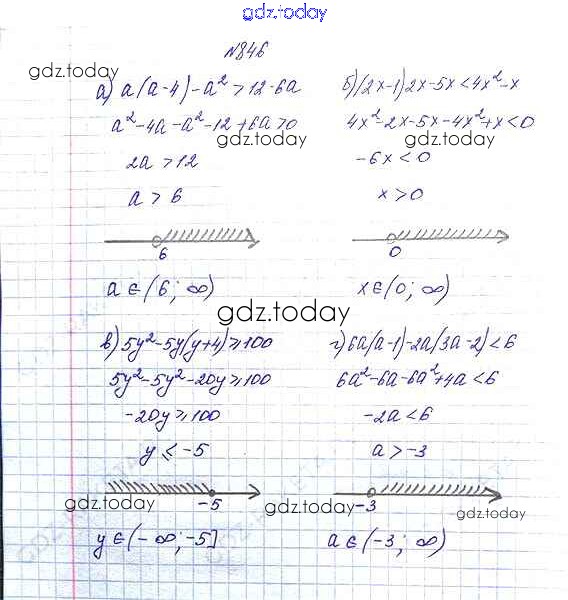 gdz.today
№846
gdz.today
а) a(a-4)-a²>12-6a
a²-4a-a²-12+6a>0
2a>12
a>6
6
a∈(6; ∞)
б) (2x-1)2x-5x<4x²-x
4x²-2x-5x-4x²+x<0
gdz.today
gdz.today
-6x<0
x>0
0
x∈(0; ∞)
gdz.today
в) 5y²-5y(y+4)≥100
5y²-5y²-20y≥100
-20y≥100
y≤-5
-5
gdz.today
y∈(-∞; -5]
г) 6a(a-1)-2a(3a-2)<6
6a²-6a-6a²+4a<6
-2a<6
a>-3
-3
gdz.today
gdz.today
a∈(-3; ∞)